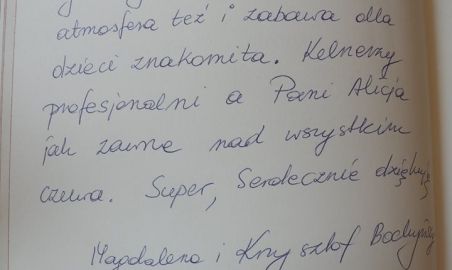 atmosfera też i zabawa dla
dzieci znakomita. Kelnerzy
profesjonalni a Pani Alicja
jak zawsze nad wszystkim
czuwa. Super, Serdecznie dziękuję
Magdalena i Krzysztof